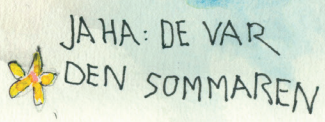 JAHA: DE VAR
DEN SOMMAREN